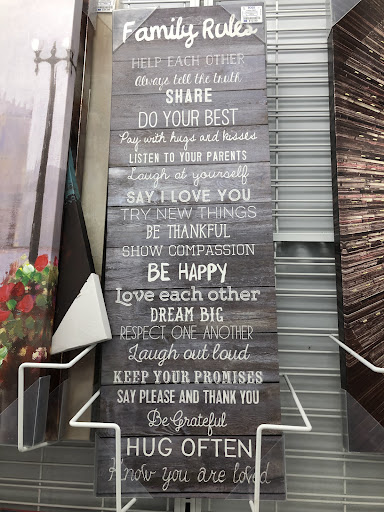 Family Rules
HELP EACH OTHER
Always tell the truth
SHARE
DO YOUR BEST
Pay with hugs and kisses
LISTEN TO YOUR PARENTS
Laugh at yourself
SAY I LOVE YOU
TRY NEW THINGS
BE THANKFUL
SHOW COMPASSION
BE HAPPY
Love each other
DREAM BIG
RESPECT ONE ANOTHER
Laugh out loud
KEEP YOUR PROMISES
SAY PLEASE AND THANK YOU
Be Grateful
HUG OFTEN
Know you are loved